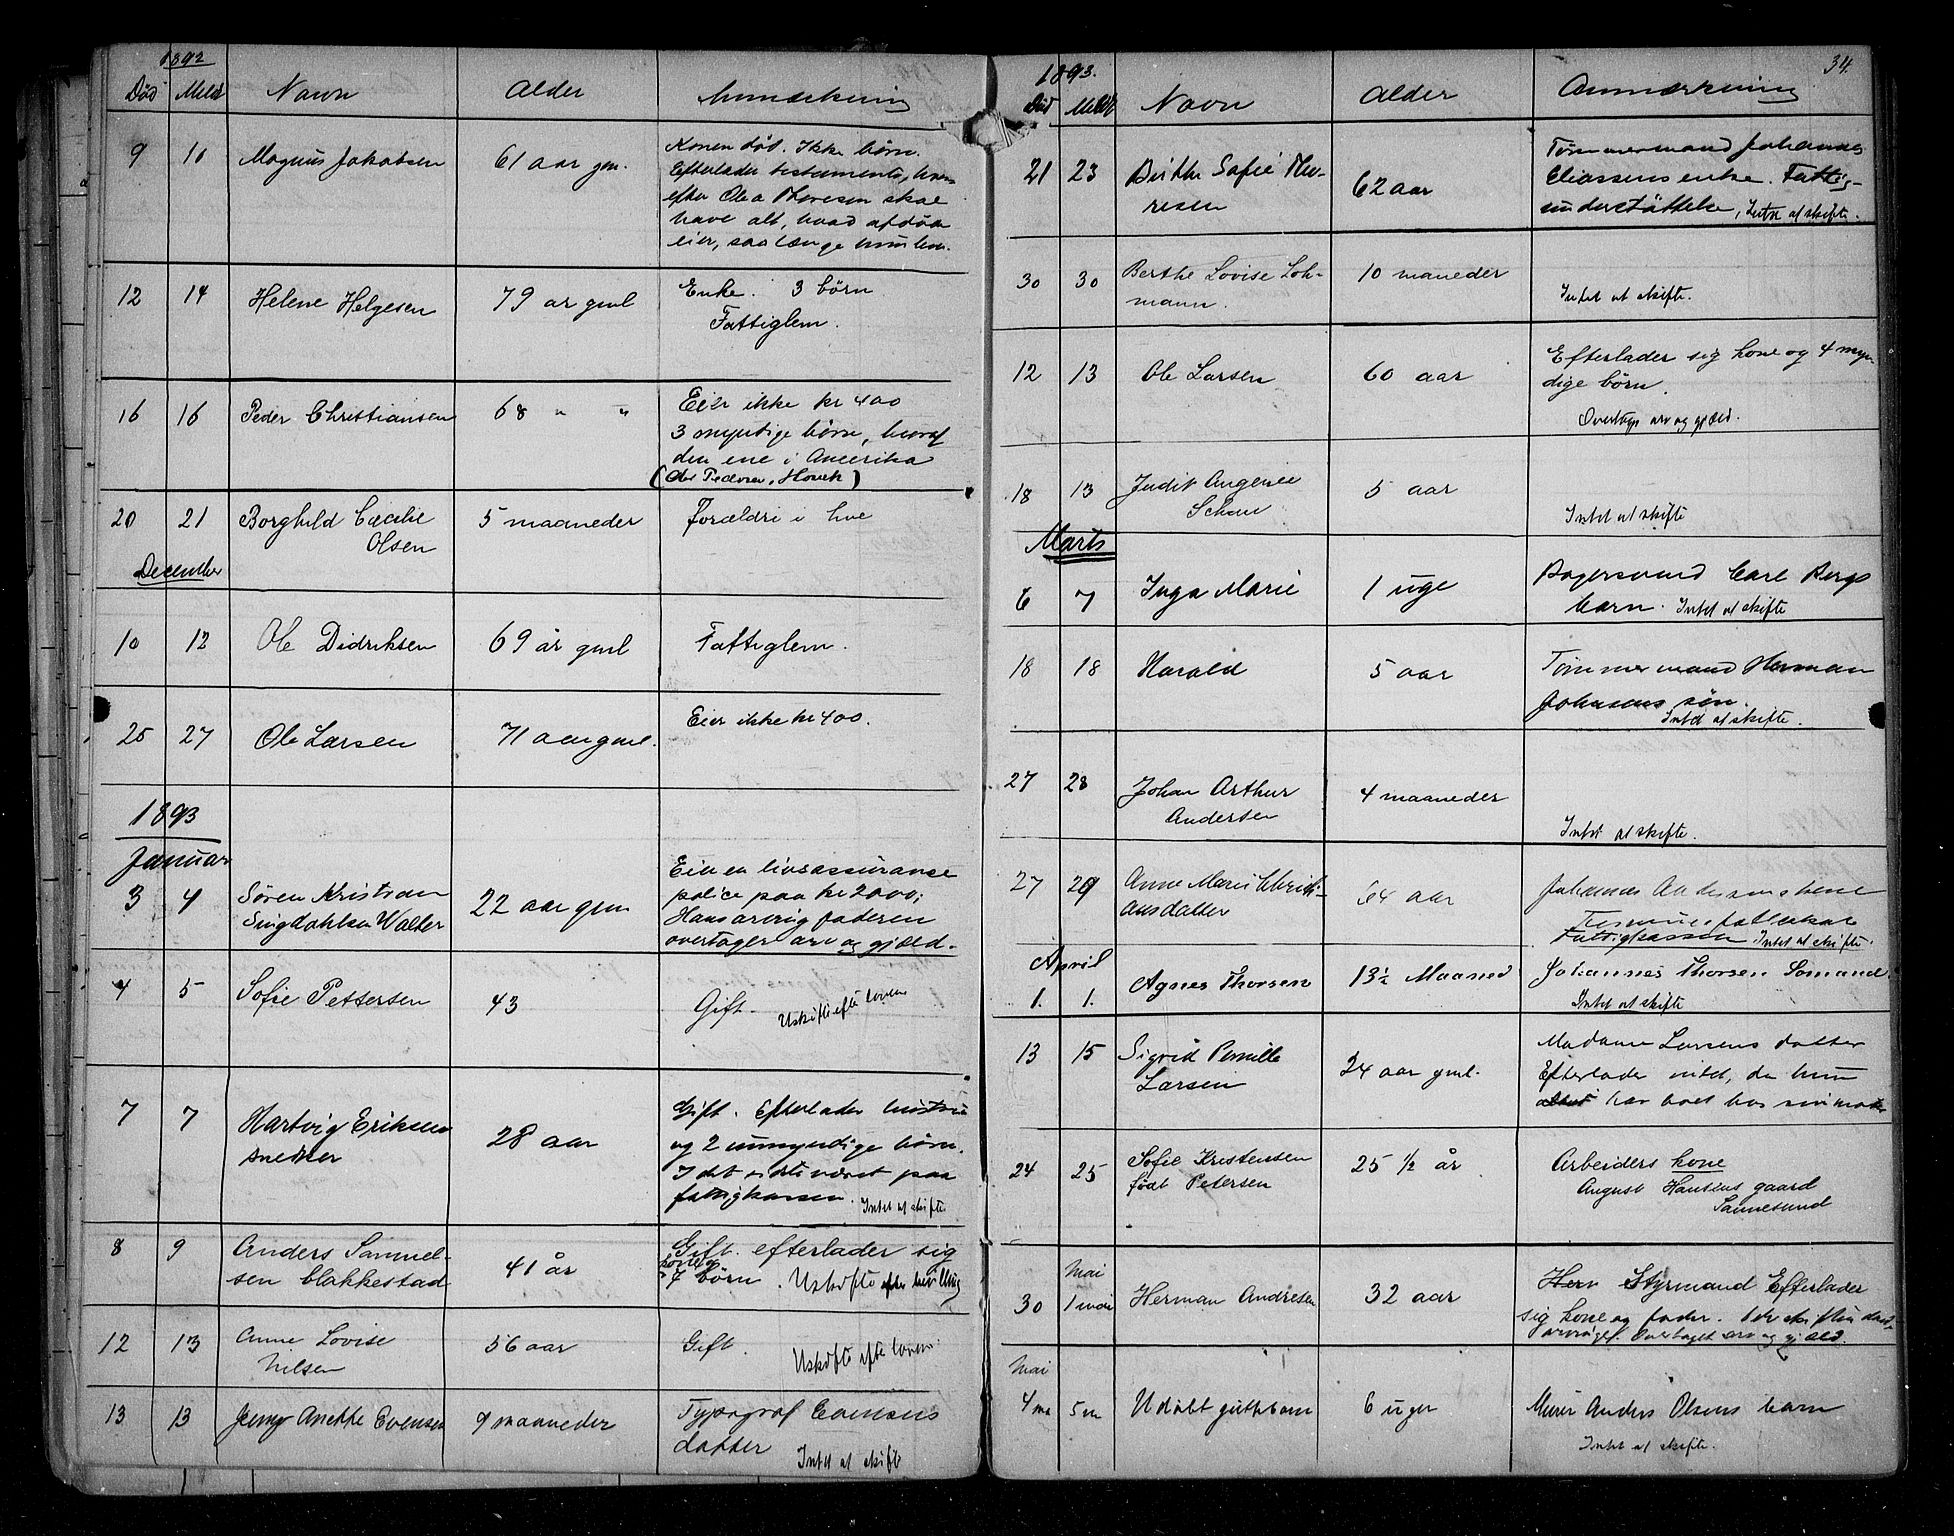 1892
Død Meldt Navn Alder Anmærkning
9 10 Magnus Jakobsen 61 aar gm. Konen død. Ikke børn.
Efterlader testamente, hvor
efter Olea Thoresen skal
have alt, hvad afdøde
eier, saalænge hun lever.
12 14 Helene Helgesen 79 ar gml Enke. 3 børn
Fattiglem.
16 16 Peder Christiansen 68 " " Eier ikke kr 400
3 myndige børn, hvoraf
den ene i Amerika
(Ole Pedersen, )
20 21 Borghild Cæcilie 5 maaneder Forældre i live
Olsen
December
10 12 Ole Didriksen 69 år gml Fattiglem.
25 27 Ole Larsen 71 aar gml. Eier ikke kr 400.
1893
Januar
3 4 Søren Kristian 22 aar gm Eier en livsassuranse
Walter police paa kr 2000;
Hans arving faderen
overtager arv og gjæld.
4 5 Sofie Pettersen 43 Gift. Uskifte efter loven
7 7 Hartvig Eriksen 28 aar Gift. Efterlader hustru
snedker og 2 umyndige børn.
I det sidste været paa
fattigkassen. Intet at skifte
8 9 Anders Samuel- 41 år Gift. efterlader sig
sen Blakkestad kone og 7 børn. Uskifte efter bevilling
12 13 Anne Lovise 56 aar Gift. Uskifte efter loven
Nilsen
13 13 Jenny Anette Evensen 9 maaneder Typograf Evensens
datter Intet at skifte
34.
1893.
Død Meldt Navn Alder Anmærkning
21 23 Birthe Sofie Tho- 62 aar Tømmermand Johannes
resen Eliassens enke. Fattig-
understøttelse, Intet at skifte.
30 30 Berthe Lovise Loh- 10 maneder
mann. Intet at skifte.
12 13 Ole Larsen 60 aar Efterlader sig kone og 4 myn-
dige børn.
Overtage arv og gjæld.
18 13 Judit 5 aar
Intet at skifte
Marts
6 7 Inga Marie 1 uge Bagersvend Carl Bergs
barn. Intet at skifte
18 18 Harald 5 aar Tømmermand Herman
Johansens søn.
Intet at skifte.
27 28 Johan Arthur 4 maaneder
Andersen Intet at skifte.
27 29 Anne Marie Christi- 64 aar Johannes
ansdatter
Fattigkassen Intet at skifte.
April
1. 1. Agnes Thorsen 13½ Maaned Johannes Thorsen Sømand.
Intet at skifte
13 15 Sigrid Pernille 24 aar gml. Madame Larsens datter
Larsen Efterlader intet, da hun
altid har boet hos sin moder
24 25 Sofie Kristensen 25 1/2 år Arbeiders kone
født Petersen August Hansens gaard
Sannesund
Mai
30 1 mai Herman Andresen 32 aar Herr Styrmand Efterlader
sig kone og fader.
Overtaget arv og gjæld.
Mai
4 ma 5 m Udøbt guttebarn 6 uger Murer Anders Olsens barn
Intet at skifte.